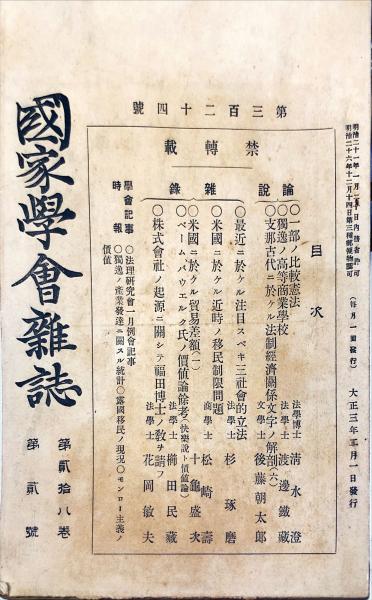 明治二十一年一月二日內務省許可
明治二十六年十二月十四日第三種郵便物認可
(每月一回發行)
大正三年二月一日發行
第三百二十四號
禁轉載
目次
論說
〇一部ノ比較憲法 法學博士 清水澄
〇獨逸ノ高等商業學校 法學士 渡邊鐵藏
〇支那古代ニ於ケル法制經濟關係文字ノ解剖(六) 文學士 後藤朝太郎
雜錄
〇最近ニ於ケル注目スベキ三社會的立法 法學士 杉琢磨
〇米國ニ於ケル近時ノ移民制限問題 商學士 松崎壽
〇米國ニ於ケル貿易差額(二) 十龜盛次
〇ベーム、バウエルク氏ノ價値論餘考(快樂說ト價値論) 法學士 櫛田民藏
〇株式會社ノ起源ニ關シテ福田博士ノ敎ヲ請フ 法學士 花岡敏夫
學會記事 〇法理硏究會一月例會記事
時報 〇獨逸ノ產業發達ニ關スル統計〇露國移民ノ現況〇モンロー主義ノ
價値
國家學會雜誌
第貳拾八卷 第貳號